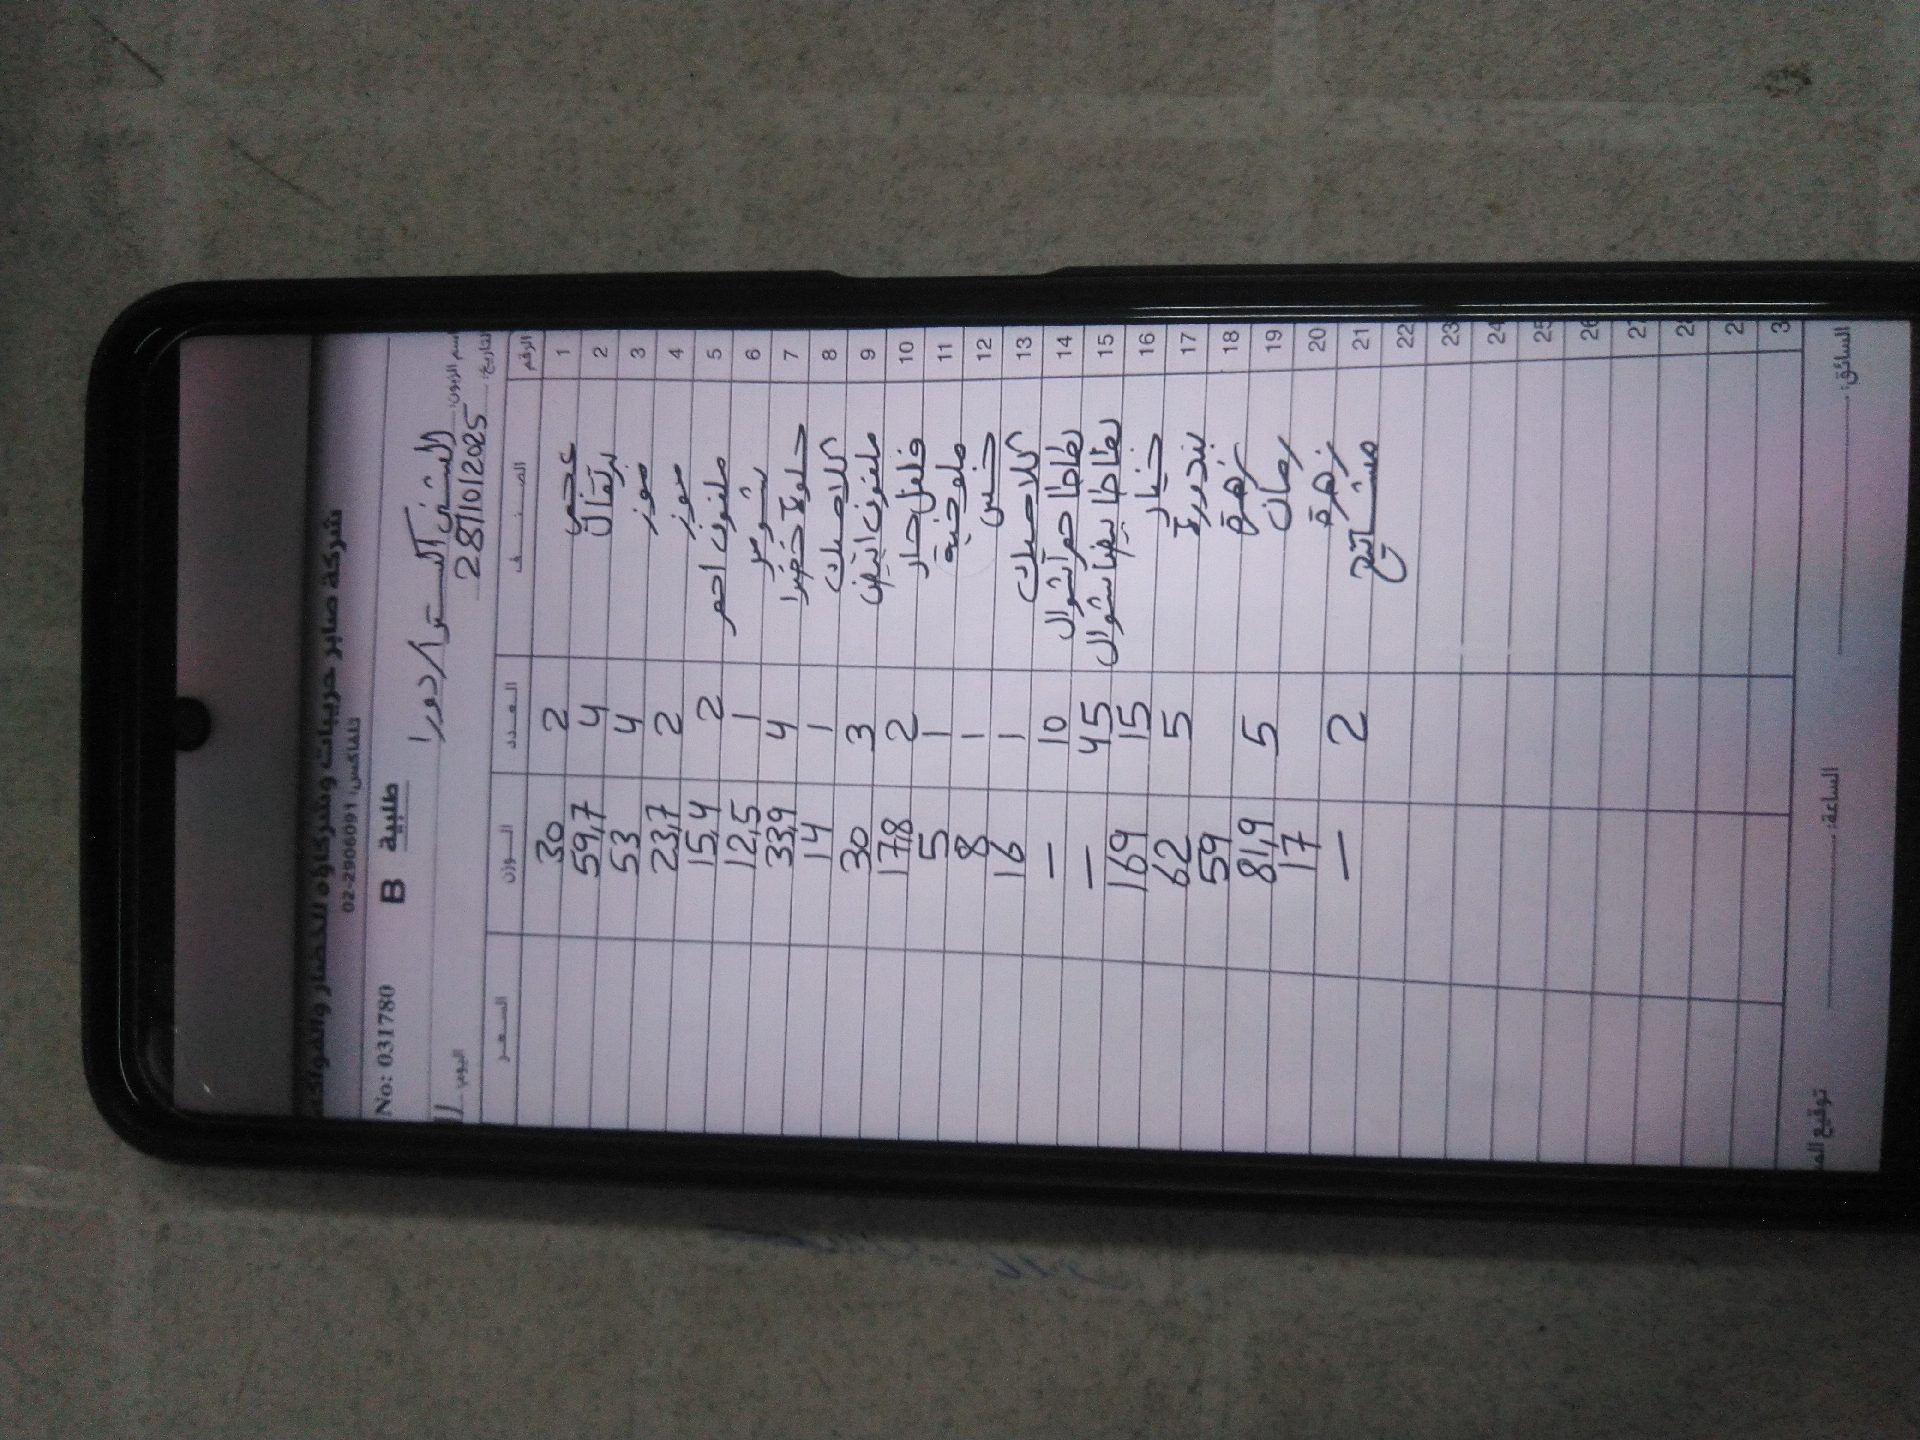 شركة صابر حريبات وشركاؤه للخضار والفواكه
تلفاكس: 02-2906091
No: 031780 B طلبية
اسم الزبون: دورا
التاريخ: 28/10/2025 اليوم
الرقم الصنف العدد الوزن السعر
1 2 30
2 برتقال 4 59,7
3 موز 4 53
4 موز 2 23,7
5 ملفوف احمر 2 15,4
6 شومر 1 12,5
7 خضرا 4 33,9
8 كلامنتينا 1 14
9 ملفوف ابيض 3 30
10 فلفل حار 2 17,8
11 ملوخية 1 5
12 خس 1 8
13 1 16
14 بطاطا حمرا شوال 10 —
15 بطاطا بيضا شوال 45 —
16 خيار 15 169
17 بندورة 5 62
18 زهرة 59
19 رمان 5 81,9
20 زهرة 17
21 2 —
22
23
24
25
26
27
السائق: الساعة: توقيع